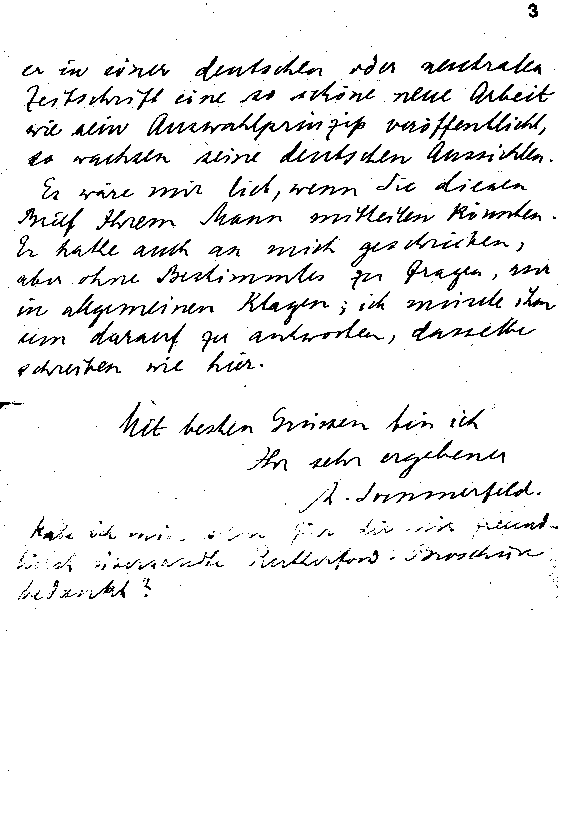 3
er in einer deutschen oder neutralen
Zeitschrift eine so schöne neue Arbeit
wie sein Auswahlprinzip veröffentlicht,
so wachsen seine deutschen Aussichten.
Es wäre mir lieb, wenn Sie diesen
Brief Ihrem Mann mitteilen könnten.
Er hatte auch an mich geschrieben,
aber ohne Bestimmtes zu fragen, nur
in allgemeinen Klagen; ich müsste ihm
um darauf zu antworten, dasselbe
schreiben wie hier.
Mit besten Grüssen bin ich
Ihr sehr ergebener
A. Sommerfeld.
Habe ich für die mir freund-
lichst übersandte Rutherford-Broschüre
bedankt?